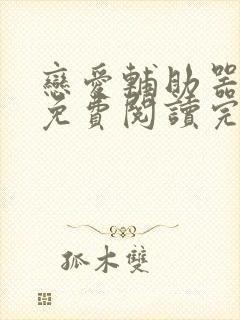 戀愛輔助器
免費閱讀完
孤木雙